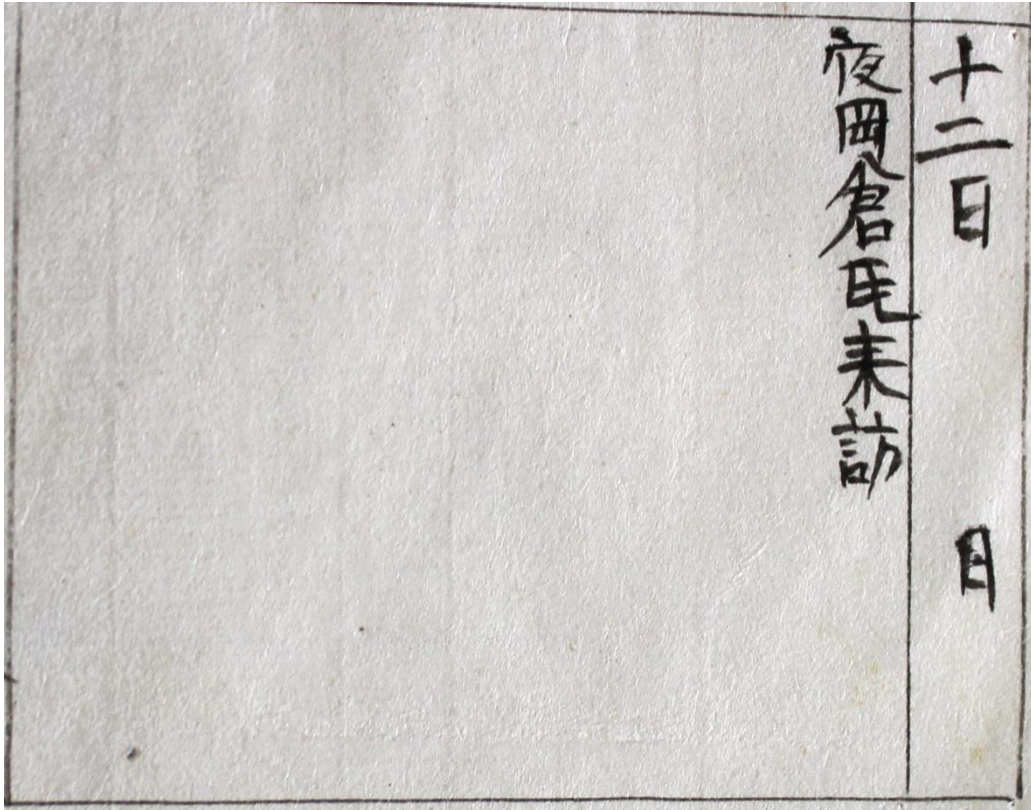 十二日 月
夜岡倉氏来訪